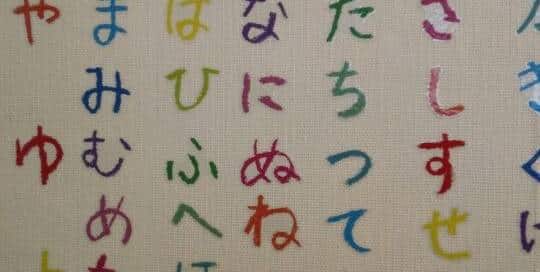 き
さしすせ
たちつて
なにぬね
はひふへ
まみむめ
やゆ